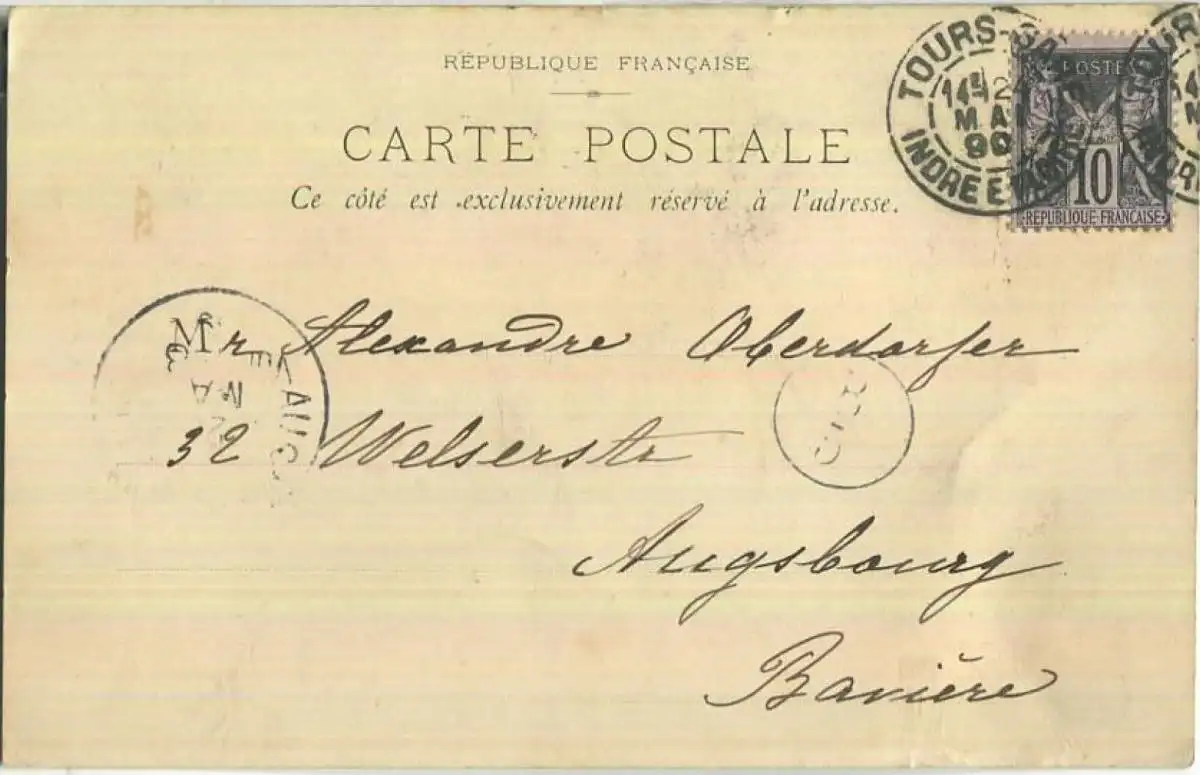 RÉPUBLIQUE FRANÇAISE
CARTE POSTALE
Ce côté est exclusivement réservé à l'adresse.
TOURS-GA
14E 2
MA
90
INDRE ET
POSTE
10
RÉPUBLIQUE FRANÇAISE
Mr Alexandre Oberdorfer
32 Welserstr
Augsbourg
Bavière
AUG
MA